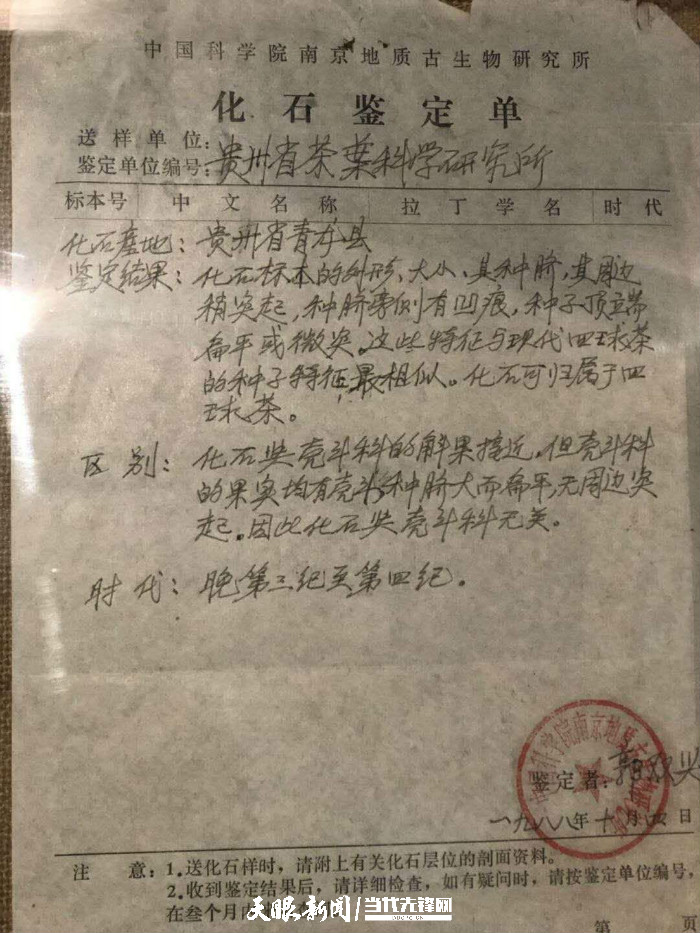 中国科学院南京地质古生物研究所
化石鉴定单
送样单位:
鉴定单位编号: 贵州省茶葉科学研究所
标本号 中文名称 拉丁学名 时代
化石产地: 贵州省晴隆县
鉴定结果: 化石标本的外形、大小,其种脐,其周边
稍突起,种脐旁侧有凹痕,种子顶端
扁平或微突。这些特征与现代四球茶
的种子特征最相似。化石可归属于四
球茶。
区别: 化石与壳斗科的解果接近,但壳斗科
的果实均有壳斗,种脐大而扁平,无周边突
起。因此化石与壳斗科无关。
时代: 晚第三纪至第四纪。
中国科学院南京地质古
鉴定者: 郭双兴
一九八八年十月四日
注意: 1.送化石样时,请附上有关化石层位的剖面资料。
2.收到鉴定结果后,请详细检查,如有疑问时,请按鉴定单位编号,
在叁个月内
天眼新闻 当代先锋网
DDCPC.CN
第 页